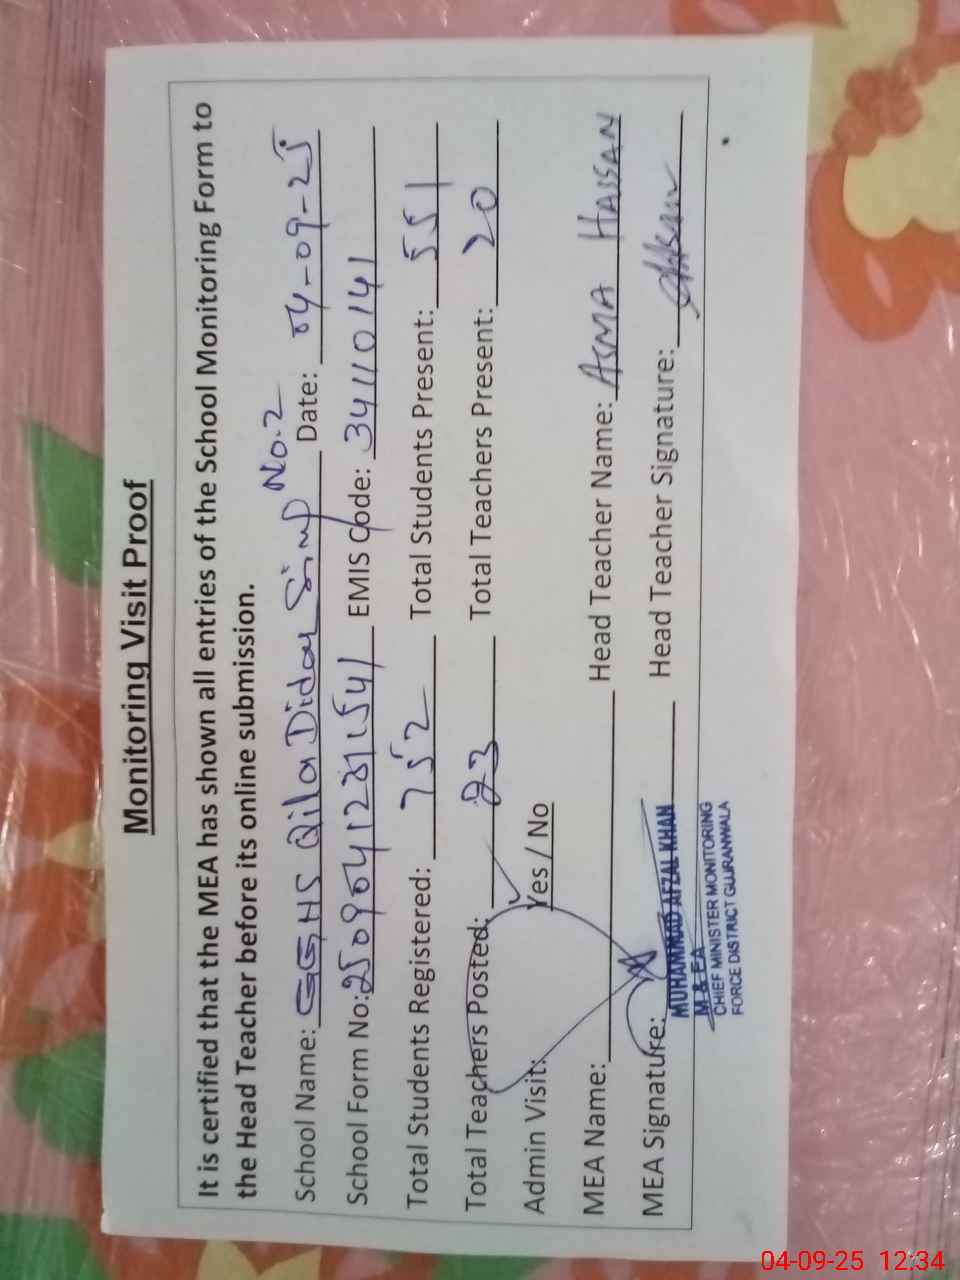 Monitoring Visit Proof
It is certified that the MEA has shown all entries of the School Monitoring Form to
the Head Teacher before its online submission.
School Name: GGHS Qila Didar Singh No.2 Date: 04-09-25
School Form No: EMIS Code: 34110141
Total Students Registered: 752 Total Students Present: 551
Total Teachers Posted: 23 Total Teachers Present: 20
Admin Visit: Yes / No
MEA Name: Head Teacher Name: ASMA HASSAN
MEA Signature: Head Teacher Signature:
MUHAMMAD AFZAL KHAN
M & EA
CHIEF MINISTER MONITORING
FORCE DISTRICT GUJRANWALA
04-09-25 12:34